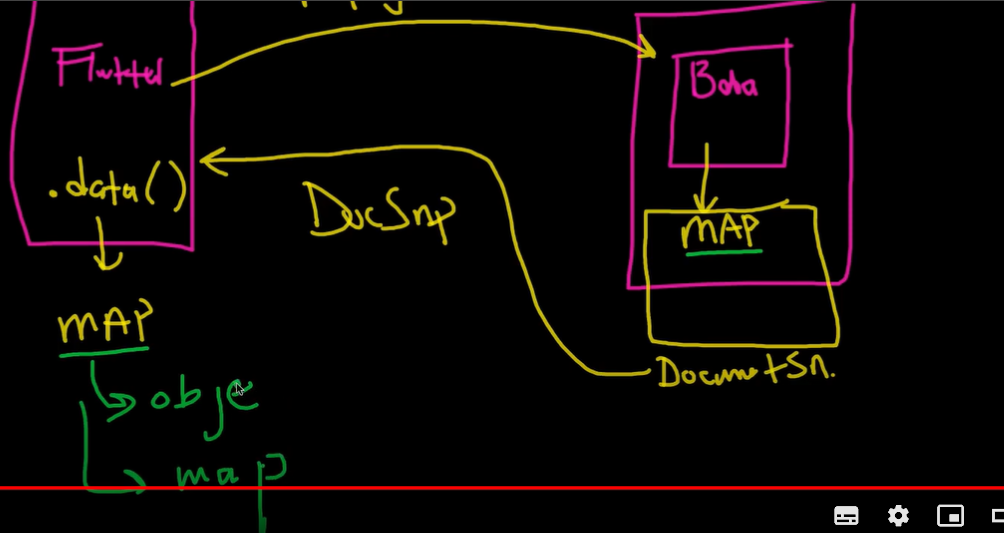 Flutter
.data()
MAP
obje
map
DocSnp
Boba
MAP
DocumetSn.